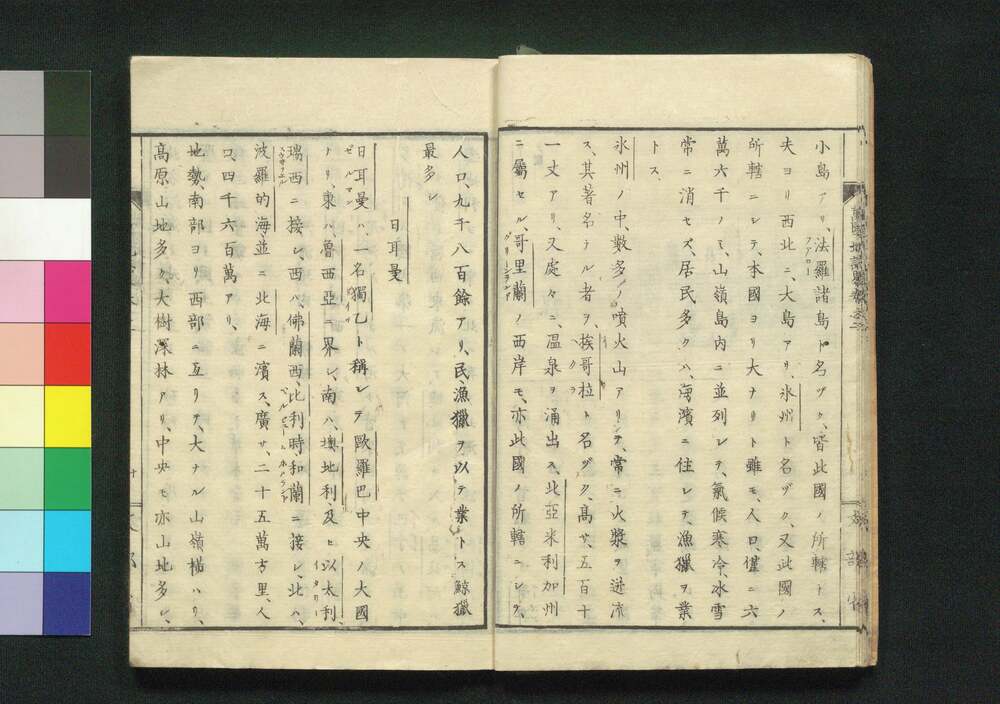 小島アリ、法羅諸島ト名ヅク、皆此國ノ所轄トス、
ファロー
夫ヨリ西北ニ、大島アリ、氷州ト名ヅク、又此國ノ
所轄ニシテ、本國ヨリ大ナリト雖モ、人口、僅ニ六
萬六千ノミ、山嶺島内ニ並列シテ、氣候寒冷、氷雪
常ニ消セズ、居民多クハ、海濱ニ住シテ、漁獵ヲ業
トス
氷州ノ中、數多ノ噴火山アリテ、常ニ火漿ヲ迸流
ス、其著名ナル者ヲ、挨哥拉ト名ヅク、高サ、五百十
ヘクラ
一丈アリ、又處々ニ、温泉ヲ涌出ス、北亞米利加州
ニ屬セル、哥里蘭ノ西岸モ、亦此國ノ所轄ニシテ、
グリーンランド
人口、九千八百餘アリ、民、漁獵ヲ以テ業トス鯨獵
最多シ
日耳曼
日耳曼ハ、一名獨乙ト稱シテ歐羅巴中央ノ大國
ゼルマン
ナリ、東ハ、魯西亞ニ界シ、南ハ、墺地利、及ヒ以太利、
イタリー
瑞西ニ接シ、西ハ、佛蘭西、比利時和蘭ニ接シ、北ハ、
波羅的海並ニ北海ニ濱ス、廣サ、二十五萬方里、人
口、四千六百萬アリ、
地勢、南部ヨリ西部ニ亙リテ、大ナル山嶺横ハリ、
高原山地多ク、大樹深林アリ、中央モ亦山地多シ、